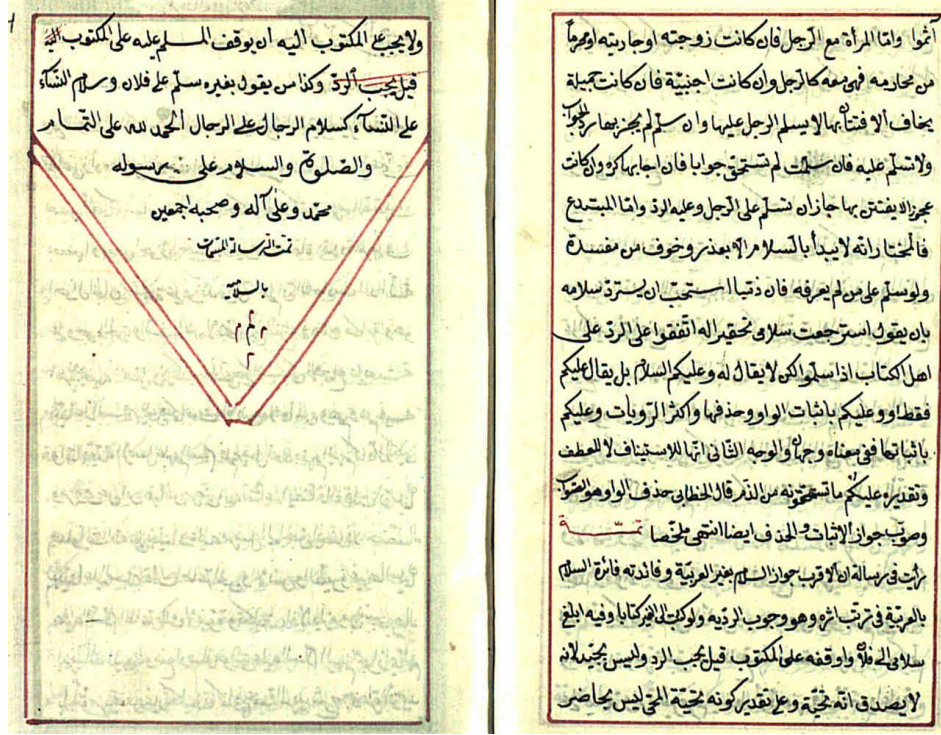 آثموا وامّا المرأة مع الرّجل فان كانت زوجته اوجاريته اومحرماً
من محارمه فهى معه كالرّجل وان كانت اجنبيّة فان كانت جميلة
يخاف الافتتان بها لايسلم الرجل عليها وان سلّم لم يجز لها ردّ الجواب
ولاتسلّم عليه فان سلّمت لم تستحق جوابا فان اجابها كره وان كانت
عجوزا لايفتتن بها جاز ان تسلّم على الرّجل وعليه الردّ وامّا المبتدع
فالمختار انّه لايبدأ بالسّلام الا بعذر وخوف من مفسدة
ولو سلّم على من لم يعرفه فان ذميا استحبّ ان يستردّ سلامه
بان يقول استرجعت سلامى تحقيرا له اتّفقوا على الردّ على
اهل الكتاب اذا سلّموا لكن لايقال له وعليكم السلام بل يقال عليكم
فقط او وعليكم باثبات الواو وحذفها واكثر الرّويات وعليكم
باثباتها ففى معناه وجهان والوجه الثّانى انّها للاستيناف لا للعطف
وتقديره عليكم ما تستحقّونه من الذّم قال الخطابى حذف الواو هو الصّواب
وصوّب جواز الاثبات والحذف ايضا انتهى ملخّصا تمّت
رأيت فى رسالة ان الاقرب جواز السّلام بغير العربيّة وفائدته فائدة السلام
بالعربيّة فى ترتب اثره وهو وجوب الردّ به ولو كتب الى غير كتابا وفيه ابلغ
سلامى الى فلان واوقفه على المكتوب قيل يجب الرد وليس بجيّد لانه
لايصدق انّه تحيّة وعلى تقدير كونه تحيّة المحىّ ليس بحاضر
ولايجب على المكتوب اليه ان يوقف المسلم عليه على المكتوب اليه
قيل يجب الردّ وكذا من يقول بغيره سلّم على فلان وسلام النّسآء
على النّسآء كسلام الرجال على الرجال الحمد لله على التّمام
والصّلوة والسلام على رسوله
محمّد وعلى آله وصحبه اجمعين
تمت الرسالة المسمّات
بالسلاميه
م م م